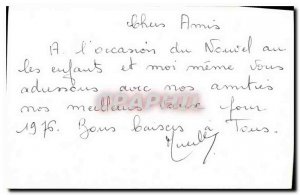 Chers Amis
A l'occasion du Nouvel an
les enfants et moi même vous
adressons avec nos amitiés
nos meilleurs pour
1976. Bons baisers à Tous.